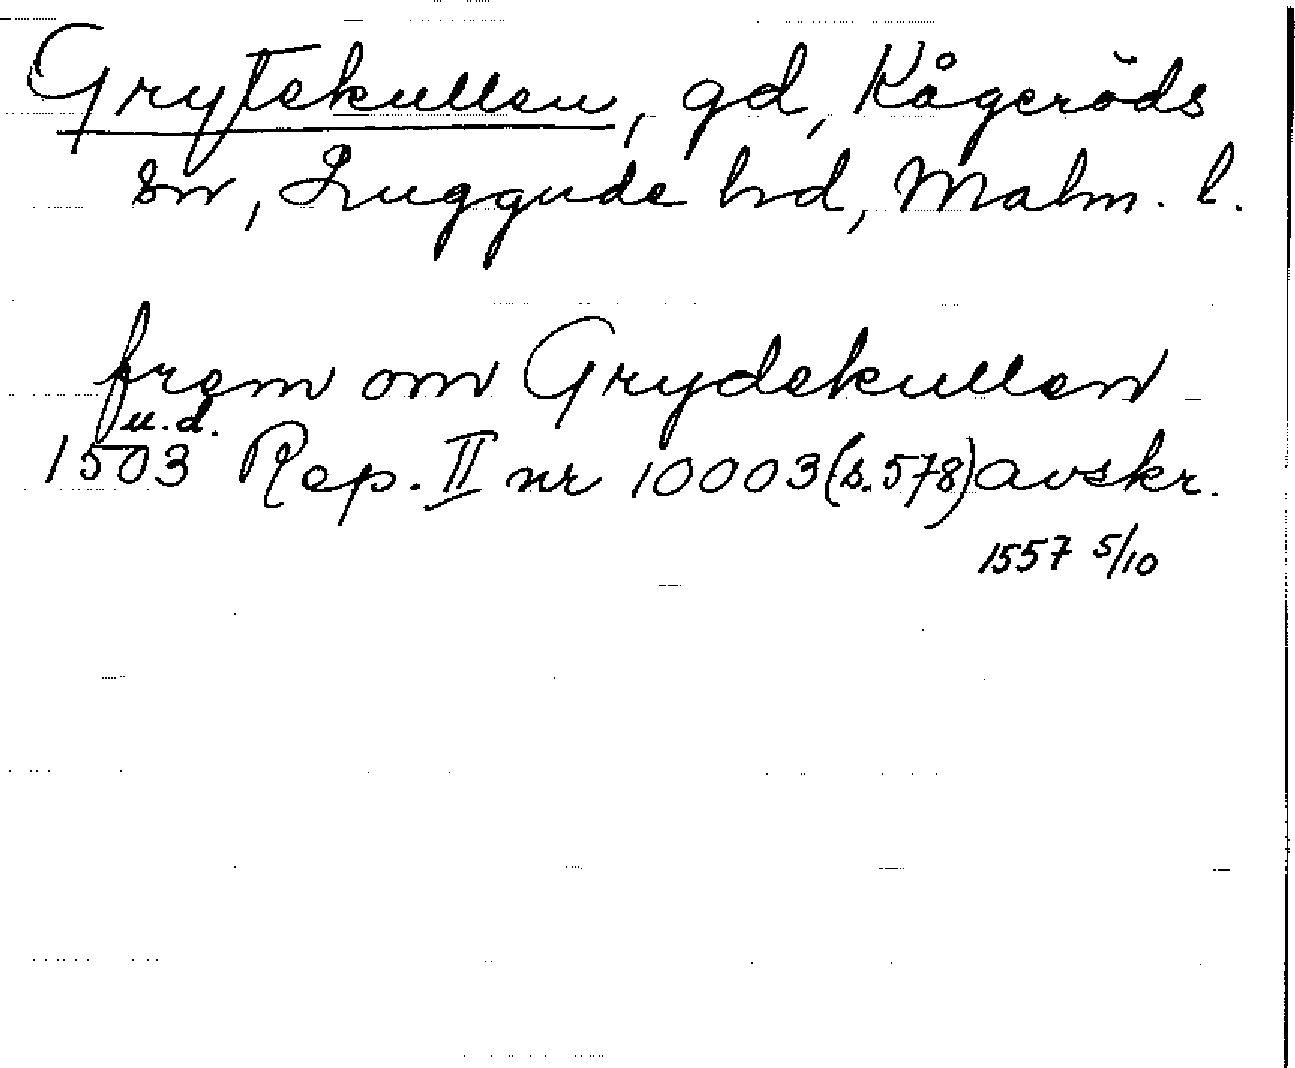 Grytekullen, gd, Kågeröds
sn, Luggude hd, Malm. l.
frem om Grydekullen
u.d.
1503 Rep. II nr 10003 (s. 578) avskr.
1557 5/10